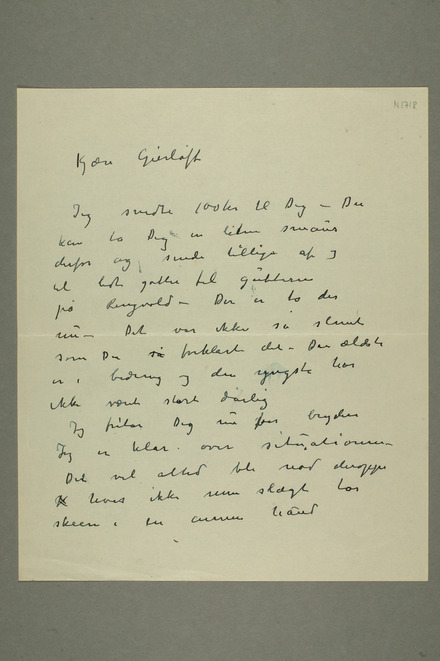 N 1718
Kjære Gierløff
Jeg sendte 100 kr til Dig – Du
kan ta Dig en liten smaus
derfor og sende tillige af
til lidt godter til guttene
på Ringvold – Der er to der
nu – Det var ikke så slemt
som Du så forklarte det – Den ældste
er i bedring og den yngste har
ikke vært stort dårlig
Jeg fritar Dig nu for bryderi
Jeg er klar over situationen –
Det vil altid bli nød deroppe
hvis ikke min slægt tar
skeen i en annen hånd